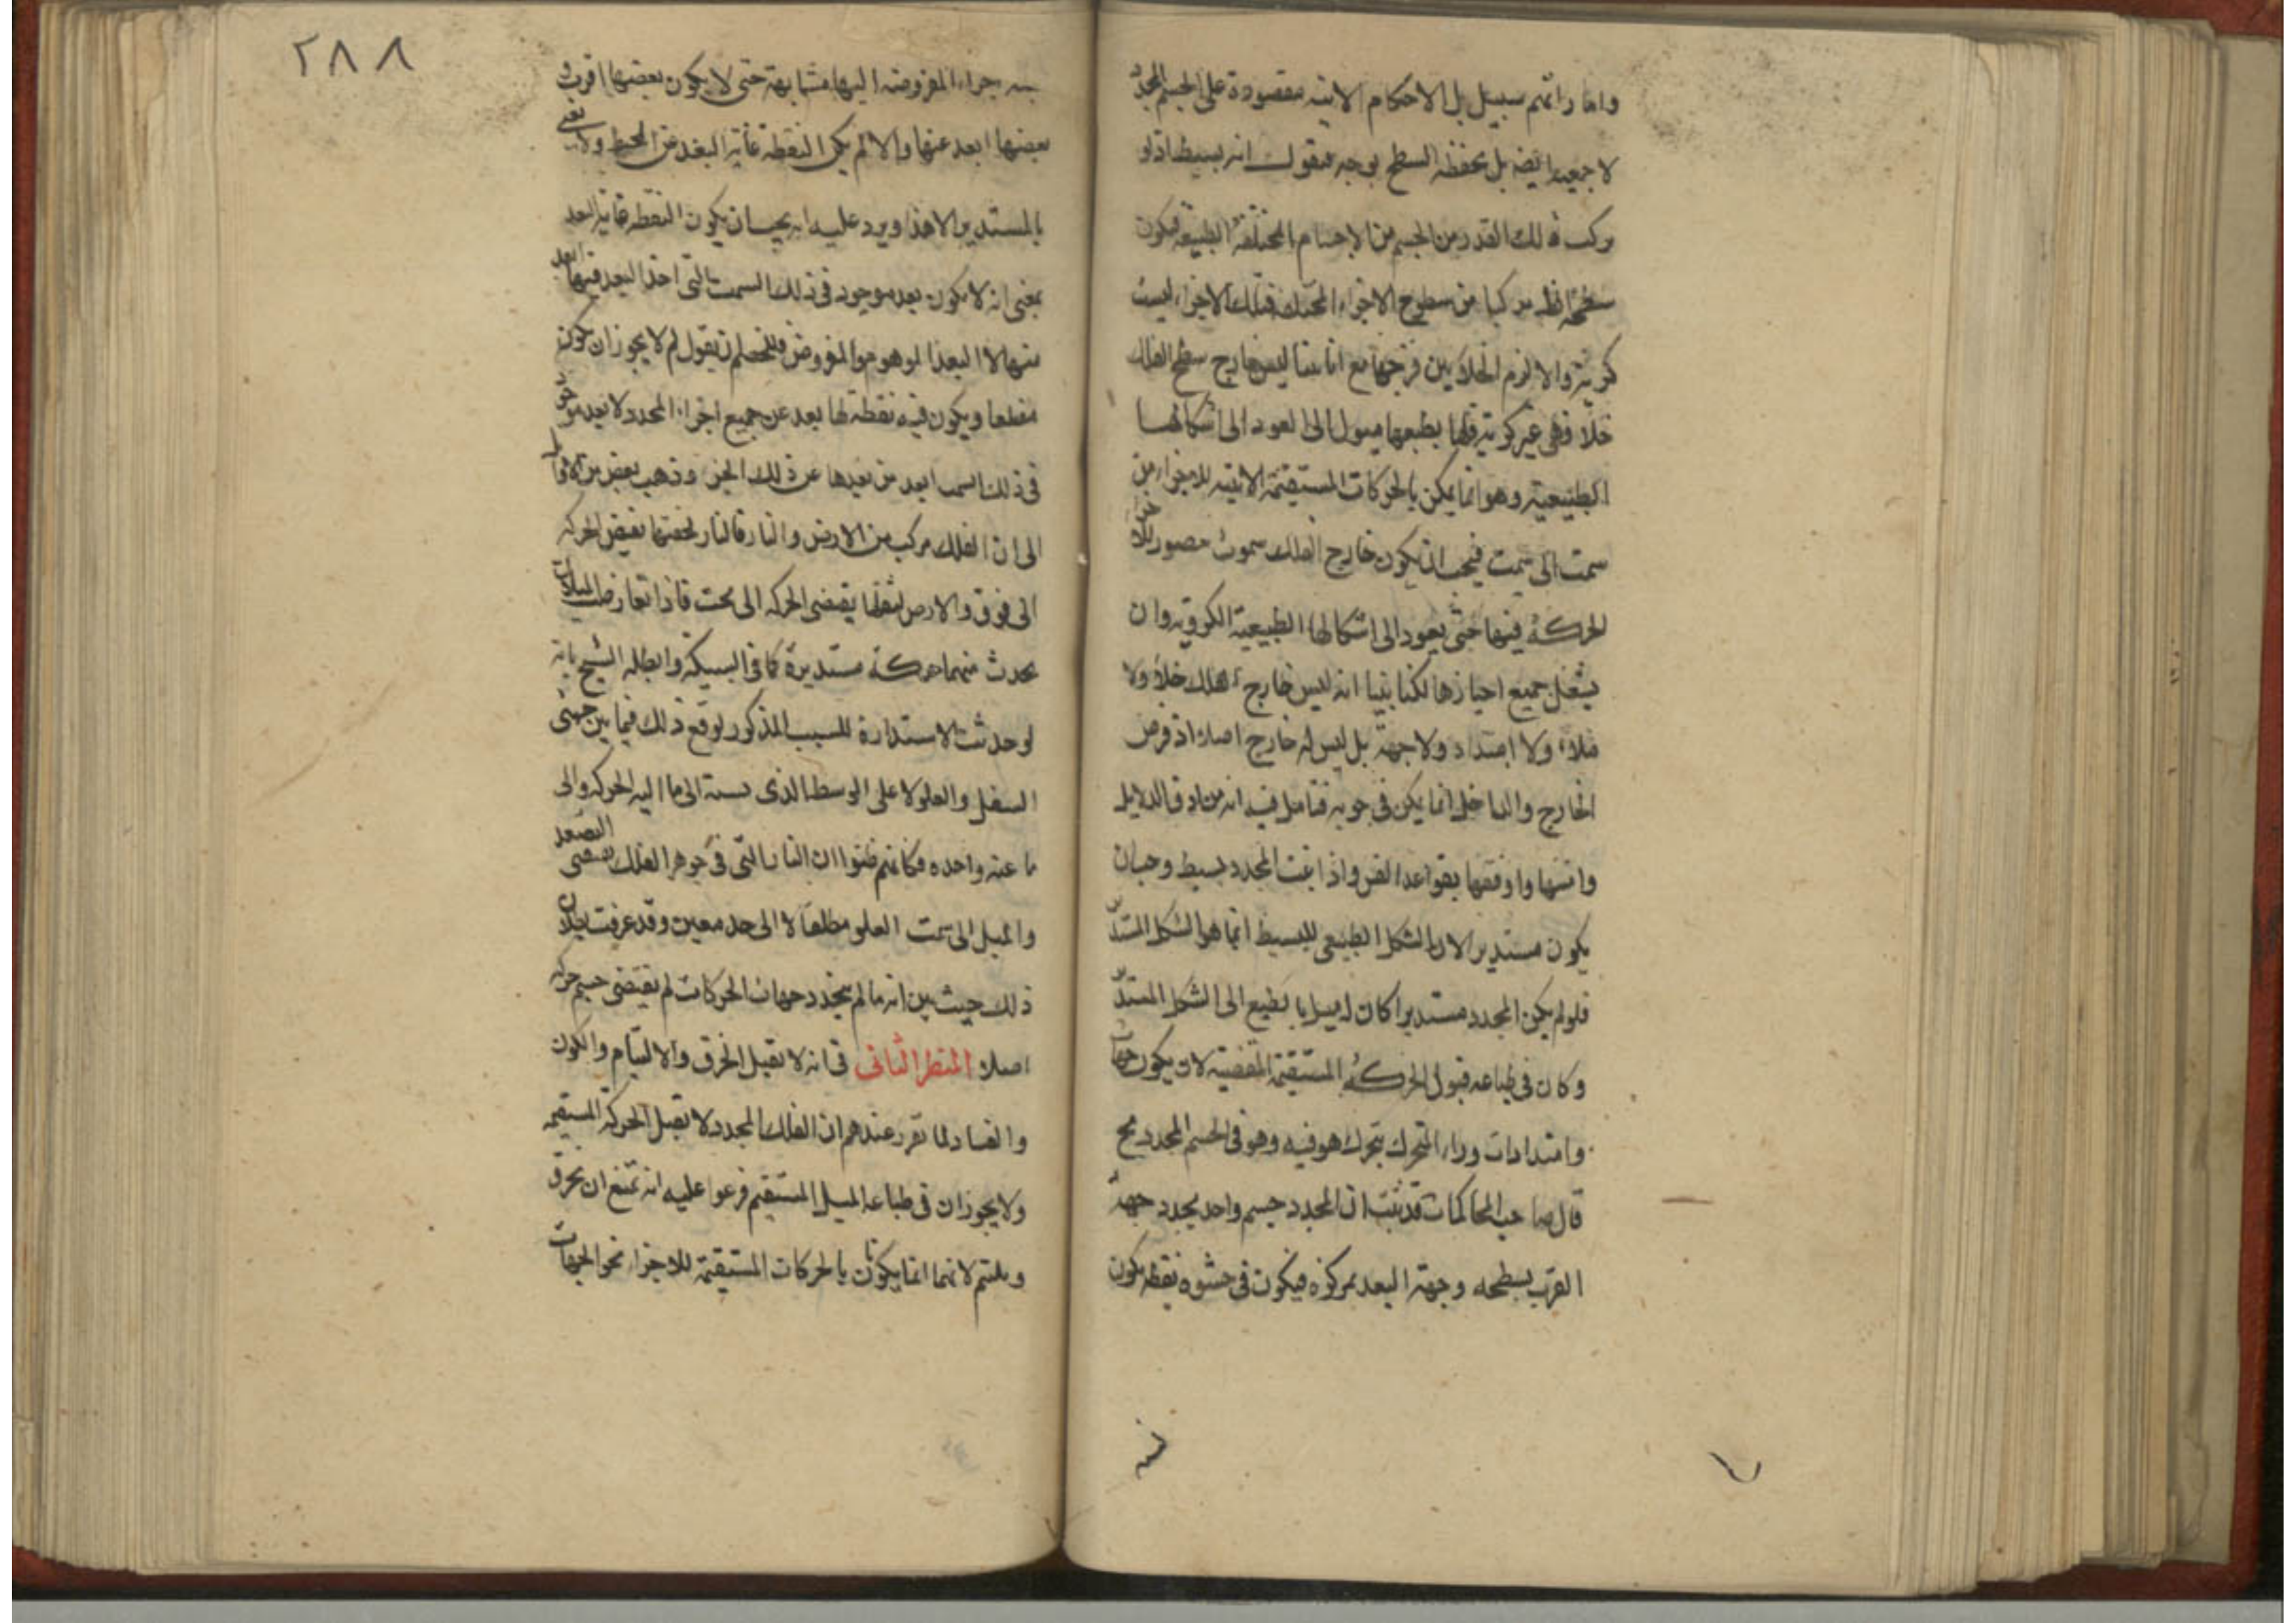 واما راتهم سبيل بل الاحكام الاتية مقصودة على الجسم المحدد
لا جميعه ايضه بل بحفظه السطح بوجه فنقول انه بسيط اذ لو
تركب ذلك القدر من الجسم من الاجسام المختلفة الطبيعة فيكون
سطحه ايضه مركبا من سطوح الاجزاء فتلك الاجزاء ليست
كرية والا لزم الخلا بين فرجها مع انا بينا ليس خارج سطح الفلك
خلا فهى غير كرية فلها بطبعها ميول الى العود الى اشكالها
الطبيعية وهو انما يمكن بالحركات المستقيمة الاتية للاجزاء من
سمت الى سمت فيجب ان يكون خارج الفلك سموت للاجزا
الحركة فيها حتى يعود الى اشكالها الطبيعية الكروية وان
يشغل جميع احيازها لكنا بينا انه ليس خارج الفلك خلاء ولا
ملاء ولا امتداد ولا جهة بل ليس له خارج اصلا اذ فرض
الخارج والداخل انما يمكن فى جوفه فتامل فيه انه من ادق الدلايل
واتقنها واوفقها بقواعد الفن واذا ثبت المحدد بسيط وجب ان
يكون مستديرا لان الشكل الطبيعى للبسيط انما هو الشكل المستدير
فلو لم يكن المحدد مستديرا كان له ميل بالطبع الى الشكل المستدير
وكان فى طباعه قبول الحركة المستقيمة المقتضية لان يكون جهات
وامتدادات وراء المتحرك يتحرك هو فيه وهو فى الجسم المحدد مح
قال صاحب المحاكمات قد ثبت ان المحدد جسم واحد يحدد جهة
القرب بسطحه وجهة البعد بمركزه فيكون فى حشوه نقطة يكون
٢٨٨
الاجزاء المفروضة اليها متشابهة حتى لا يكون بعضها اقرب و
بعضها ابعد عنها والا لم يكن النقطة غاية البعد عن المحيط ولا نعنى
بالمستدير الا هذا ويرد عليه انه يجب ان يكون النقطة غاية البعد
بمعنى انه لا يكون بعد موجود فى ذلك السمت التى اخذ البعد فيها ابعد
منها لا البعد الموهوم والمفروض فللخصم ان يقول لم لا يجوز ان يكون
مضلعا ويكون فيه نقطة لها بعد عن جميع اجزاء المحدد لا بعد موجود
فى ذلك السمت ابعد من بعدها عن ذلك الجزء وذهب بعض من الاوايل
الى ان الفلك مركب من الارض والنار فالنار لخفتها تقتضى الحركة
الى فوق والارض لثقلها يقتضى الحركة الى تحت فاذا تعارض الميلان
يحدث منهما حركة مستديرة كما فى السبيكة وابطله الشيخ بانه
لو حدثت الاستدارة للسبب المذكور لوقع ذلك فيما بين جهتى
السفل والعلو لا على الوسط الذى نسبته الى ما اليه الحركة والى
ما عنه واحده فكانهم ظنوا ان النار التى فى جوهر الفلك تقتضى التصعد
والميل الى سمت العلو مطلقا لا الى حد معين وقد عرفت بطلان
ذلك حيث بين انه ما لم يتحدد جهات الحركات لم يقتضى جسم حركة
اصلا المنظر الثانى فى انه لا يقبل الخرق والالتيام والكون
والفساد لما تقرر عندهم ان الفلك المحدد لا يقبل الحركة المستقيمة
ولا يجوز ان فى طباعه الميل المستقيم فرعوا عليه انه يمتنع ان يخرق
ويلتئم لانهما انما يكونان بالحركات المستقيمة للاجزاء نحو الجهات